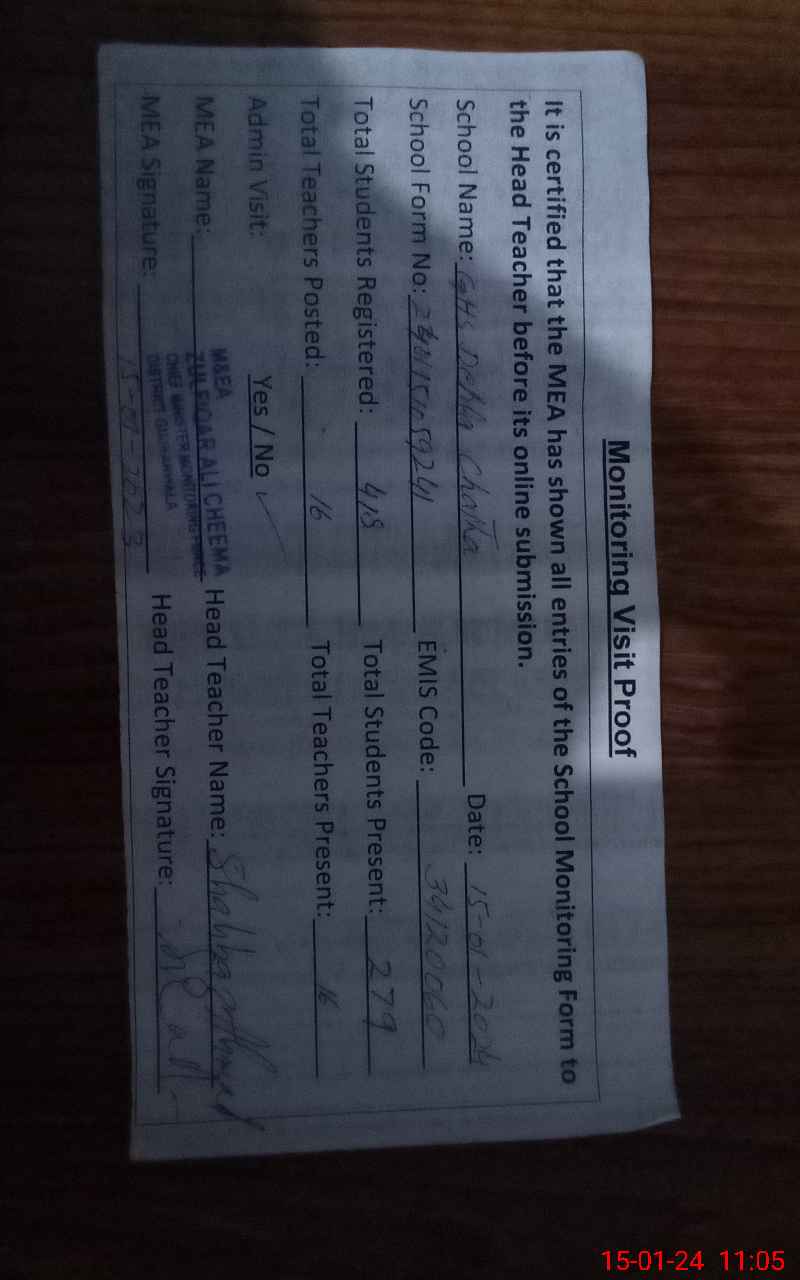 Monitoring Visit Proof
It is certified that the MEA has shown all entries of the School Monitoring Form to
the Head Teacher before its online submission.
School Name: GHS Chatha Date: 15-01-2024
School Form No: EMIS Code: 34120060
Total Students Registered: 418 Total Students Present: 279
Total Teachers Posted: 16 Total Teachers Present: 16
Admin Visit: Yes / No ✓
M&EA
ZULFIQAR ALI CHEEMA
CHIEF MINISTER MONITORING FORCE
DISTRICT GUJRANWALA
MEA Name: Head Teacher Name: Shahbaz Ahmed
MEA Signature: Head Teacher Signature:
15-01-24 11:05